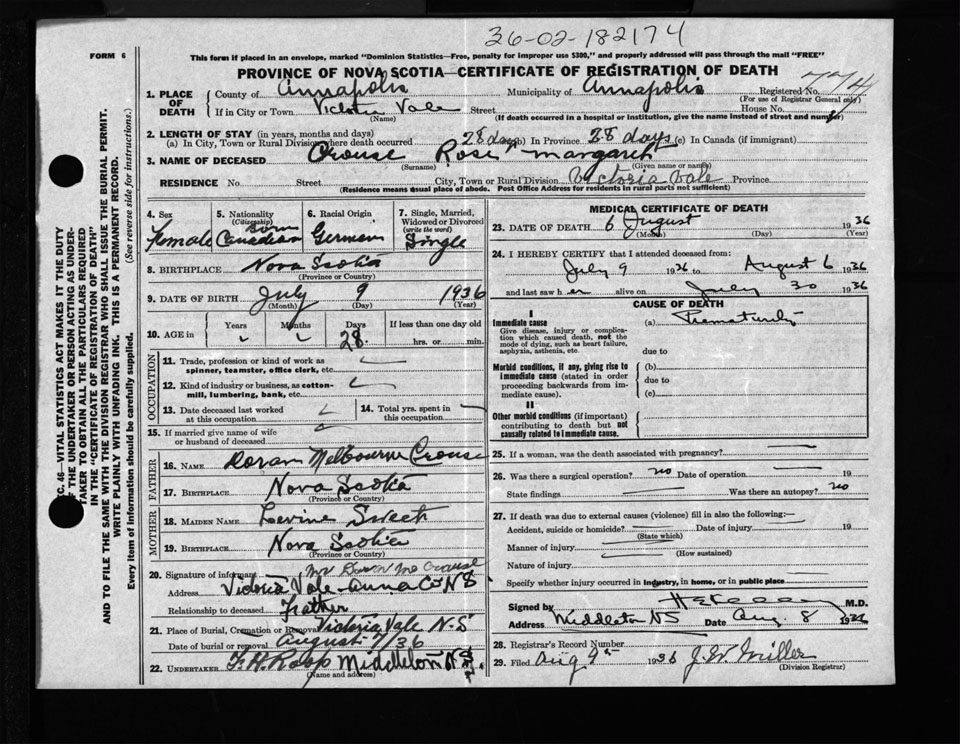 36-02-182174
FORM 6
This form if placed in an envelope, marked "Dominion Statistics—Free, penalty for improper use $300," and properly addressed will pass through the mail "FREE"
PROVINCE OF NOVA SCOTIA—CERTIFICATE OF REGISTRATION OF DEATH
1. PLACE OF DEATH County of Annapolis Municipality of Annapolis Registered No. 774
(For use of Registrar General only)
If in City or Town Victoria Vale Street House No.
(Name) (If death occurred in a hospital or institution, give the name instead of street and number)
2. LENGTH OF STAY (in years, months and days)
(a) In City, Town or Rural Division where death occurred 28 days (b) In Province 28 days (c) In Canada (if immigrant)
3. NAME OF DECEASED Crouse Rose Margaret
(Surname) (Given name or names)
RESIDENCE No. Street City, Town or Rural Division Victoria Vale Province
(Residence means usual place of abode. Post Office Address for residents in rural parts not sufficient)
4. Sex Female
5. Nationality (Citizenship) Born Canadian
6. Racial Origin German
7. Single, Married, Widowed or Divorced (write the word) Single
8. BIRTHPLACE Nova Scotia
(Province or Country)
9. DATE OF BIRTH July 9 1936
(Month) (Day) (Year)
10. AGE in Years Months Days 28 If less than one day old
hrs. or min.
OCCUPATION
11. Trade, profession or kind of work as
spinner, teamster, office clerk, etc.
12. Kind of industry or business, as cotton-
mill, lumbering, bank, etc.
13. Date deceased last worked at this occupation
14. Total yrs. spent in this occupation
15. If married give name of wife
or husband of deceased
FATHER
16. NAME Doran Melbourne Crouse
17. BIRTHPLACE Nova Scotia
(Province or Country)
MOTHER
18. MAIDEN NAME Levine Sweet
19. BIRTHPLACE Nova Scotia
(Province or Country)
20. Signature of informant Mr Doran M Crouse
Address Victoria Vale Anna Co NS
Relationship to deceased Father
21. Place of Burial, Cremation or Removal Victoria Vale N.S
Date of burial or removal August 7/36
22. UNDERTAKER F. H. Roop Middleton N.S.
(Name and address)
MEDICAL CERTIFICATE OF DEATH
23. DATE OF DEATH 6 August 1936
(Month) (Day) (Year)
24. I HEREBY CERTIFY that I attended deceased from:
July 9 1936 to August 6 1936
and last saw her alive on July 30 1936
CAUSE OF DEATH
I
Immediate cause (a) Prematurity
Give disease, injury or complica-
tion which caused death, not the
mode of dying, such as heart failure,
asphyxia, asthenia, etc.
due to
Morbid conditions, if any, giving rise to (b)
immediate cause (stated in order due to
proceeding backwards from im-
mediate cause). (c)
II
Other morbid conditions (if important)
contributing to death but not
causally related to immediate cause.
25. If a woman, was the death associated with pregnancy?
26. Was there a surgical operation? no Date of operation 19
State findings Was there an autopsy? no
27. If death was due to external causes (violence) fill in also the following:—
Accident, suicide or homicide? Date of injury 19
(State which)
Manner of injury
(How sustained)
Nature of injury
Specify whether injury occurred in industry, in home, or in public place
Signed by M.D.
Address Middleton NS Date Aug. 8 1936
28. Registrar's Record Number
29. Filed Aug 1936 J.W. Miller
(Division Registrar)
SEC. 46—VITAL STATISTICS ACT MAKES IT THE DUTY
OF THE UNDERTAKER OR PERSON ACTING AS UNDER-
TAKER TO OBTAIN ALL THE PARTICULARS REQUIRED
IN THE "CERTIFICATE OF REGISTRATION OF DEATH"
AND TO FILE THE SAME WITH THE DIVISION REGISTRAR WHO SHALL ISSUE THE BURIAL PERMIT.
WRITE PLAINLY WITH UNFADING INK. THIS IS A PERMANENT RECORD.
Every item of information should be carefully supplied. (See reverse side for instructions.)